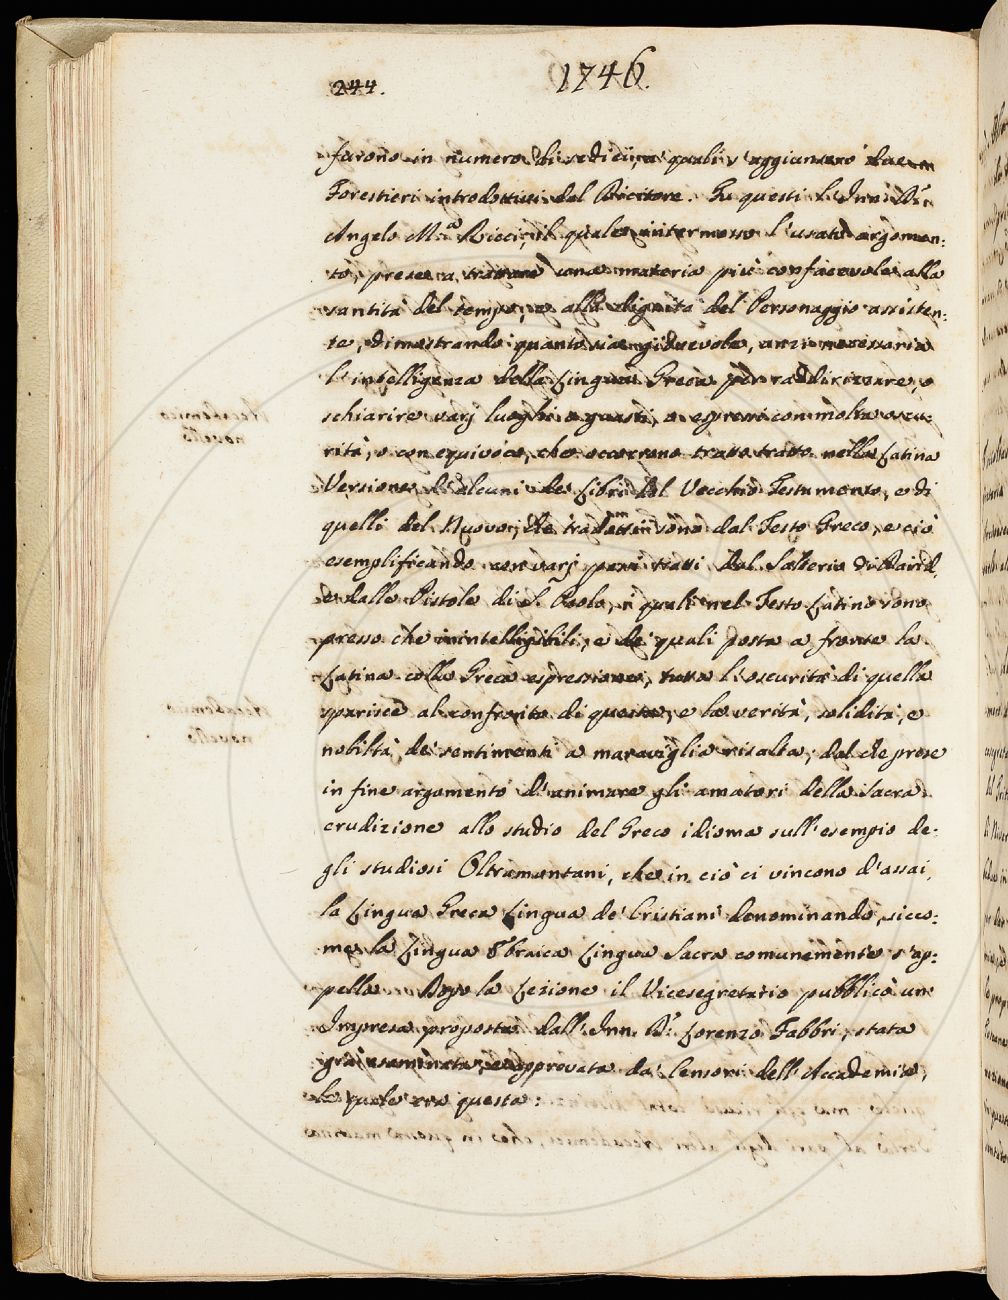 244.
1746.
furono in numero di sedici, a' quali s'aggiunsero due
Forestieri introdottivi dal Ricitore. Fu questi l'Inn. Dr.
Angelo Ma. Ricci, il quale intermesso l'usato argomen:
to, prese a trattare una materia più confacevole alla
santità del tempo, e alla dignità del Personaggio assisten:
te, dimostrando quanto sia giovevole, anzi necessaria
l'intelligenza della Lingua Greca per raddirizzare, o
schiarire varj luoghi o guasti, o espressi con molta oscu:
rità, o con equivoco, che occorrono tratto tratto nella Latina
Versione d'alcuni de' Libri del Vecchio Testamento, e di
quelli del Nuovo, che tradotti sono dal Testo Greco, e ciò
esemplificando con varj passi tratti dal Salterio di David,
e dalle Pistole di S. Paolo, i quali nel Testo Latino sono
presso che inintelligibili, e de' quali posta a fronte la
Latina colla Greca espressione, tutta l'oscurità di quella
sparisce al confronto di questa, e la verità, solidità, e
nobiltà de' sentimenti a maraviglia risalta; dal che prese
in fine argomento d'animare gli amatori della Sacra
erudizione allo studio del Greco idioma sull'esempio de:
gli studiosi Oltramontani, che in ciò ci vincono d'assai,
la Lingua Greca Lingua de' Cristiani denominando, sicco:
me la Lingua Ebraica Lingua Sacra comunemente s'ap:
pella. Dopo la Lezione il Vicesegretario pubblicò un'
Impresa proposta dall'Inn. Dr. Lorenzo Fabbri, stata
già esaminata, e approvata da' Censori dell'Accademia,
la quale era questa: